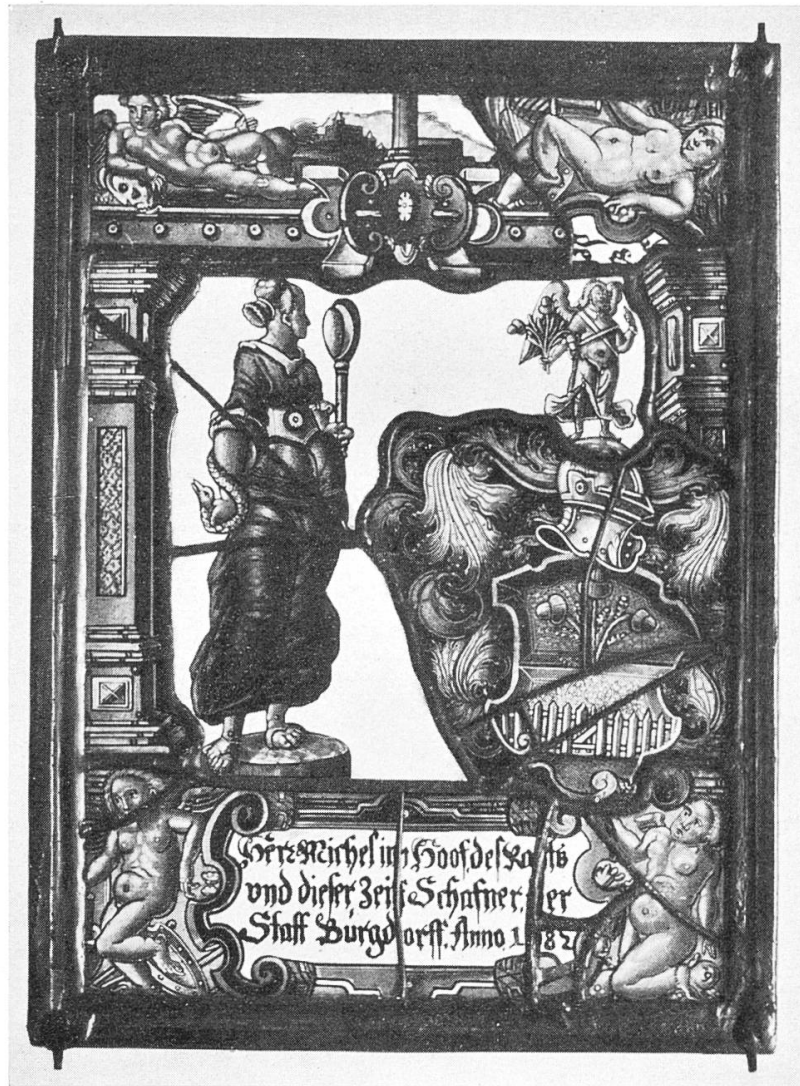 Herr Michel im Hoof des Rahts
vnd dieser Zeit Schafner, er
Statt Burgdorff. Anno 1 82